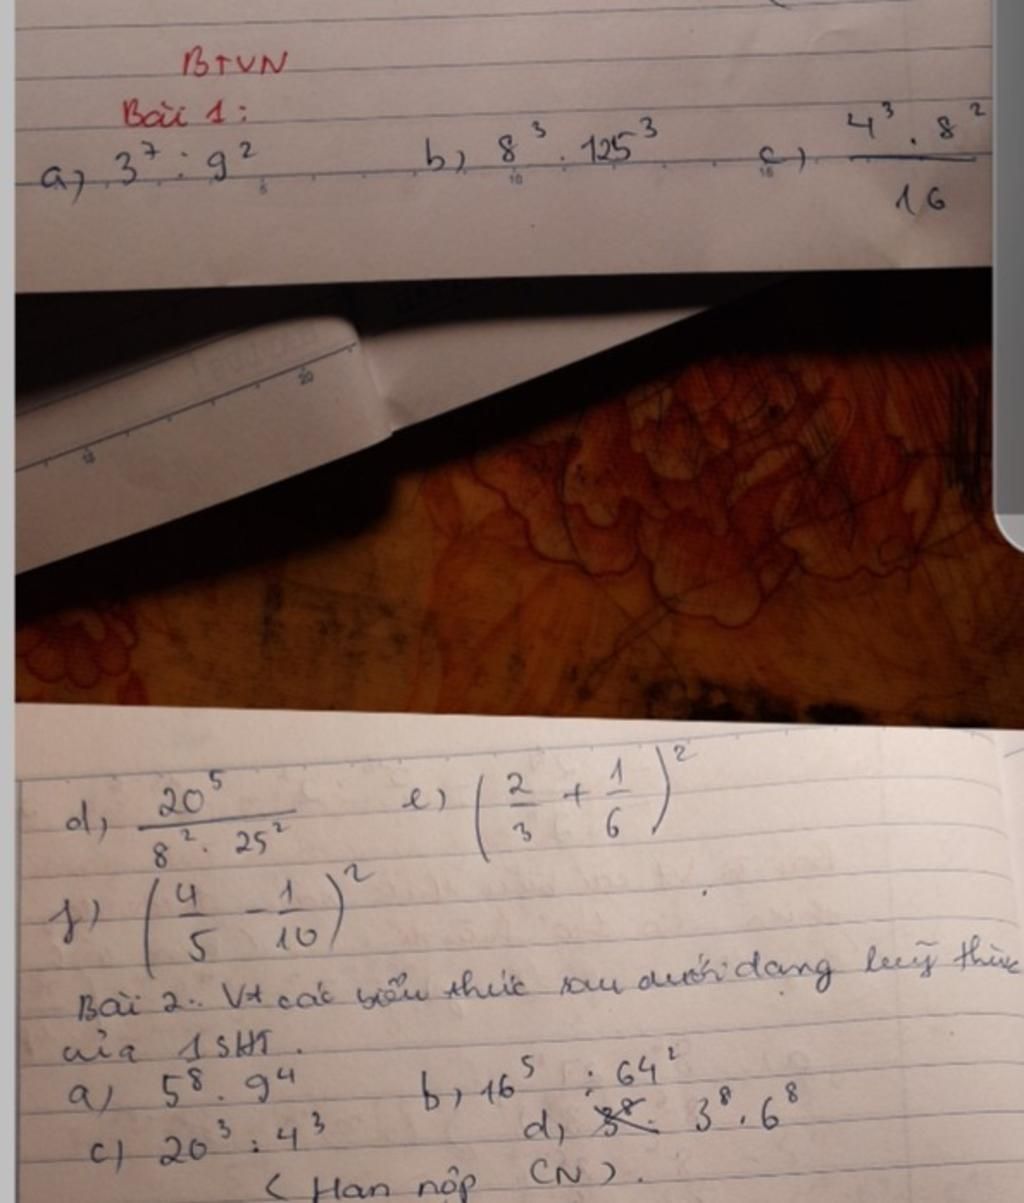 BTVN
Bài 1:
a) 3⁷ : 9² b) 8³ . 125³ c) (4³ . 8²)/16
d) 20⁵/(8² . 25²) e) (2/3 + 1/6)²
f) (4/5 - 1/10)²
Bài 2.. Vt các biểu thức sau dưới dạng luỹ thừc
của 1 SHT.
a) 5⁸ . 9⁴ b) 16⁵ : 64²
c) 20³ : 4³ d) 3⁸ . 6⁸
(Han nộp CN).